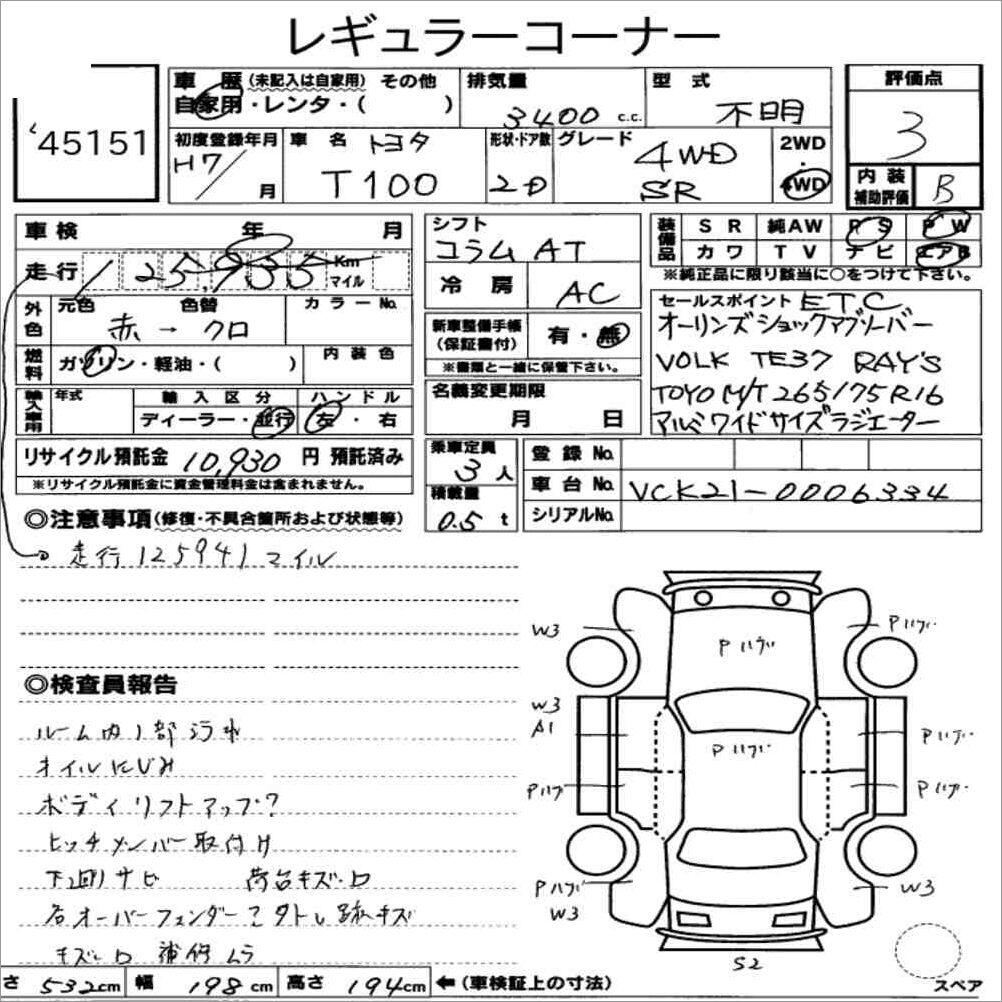 レギュラーコーナー
45151
車歴 (未記入は自家用) その他
自家用・レンタ・( )
排気量
3400 c.c.
型式
不明
評価点
3
初度登録年月
H7/ 月
車名 トヨタ
T100
形状・ドア数
2D
グレード
4WD
SR
2WD
・
4WD
内装
補助評価
B
車検 年 月
走行 125,935 Km マイル
外色
元色 色替
赤 → クロ
カラーNo.
燃料
ガソリン・軽油・( )
内装色
輸入車用
年式
輸入区分
ディーラー・並行
ハンドル
左・右
リサイクル預託金 10,930 円 預託済み
※リサイクル預託金に資金管理料金は含まれません。
シフト
コラム AT
冷房
AC
新車整備手帳
(保証書付)
有・無
※書類と一緒に保管下さい。
名義変更期限
月 日
乗車定員
3人
積載量
0.5 t
装備品
SR 純AW PS PW
カワ TV ナビ エアB
※純正品に限り該当に○をつけて下さい。
セールスポイント ETC
オーリンズショックアブソーバー
VOLK TE37 RAY'S
TOYO M/T 265/75R16
アルミワイドサイズラジエーター
登録No.
車台No. VCK21-0006334
シリアルNo.
◎注意事項(修復・不具合箇所および状態等)
走行 125941マイル
◎検査員報告
ルーム内1部汚れ
オイルにじみ
ボディリフトアップ?
ヒッチメンバー取付け
下回りサビ 荷台キズ・凹
右オーバーフェンダー
キズ・凹 補修ムラ
W3
Pハゲ
Pハゲ
W3
A1
Pハゲ
Pハゲ
Pハゲ
Pハゲ
Pハゲ
W3
W3
S2
スペア
さ 532cm 幅 198cm 高さ 194cm ←(車検証上の寸法)